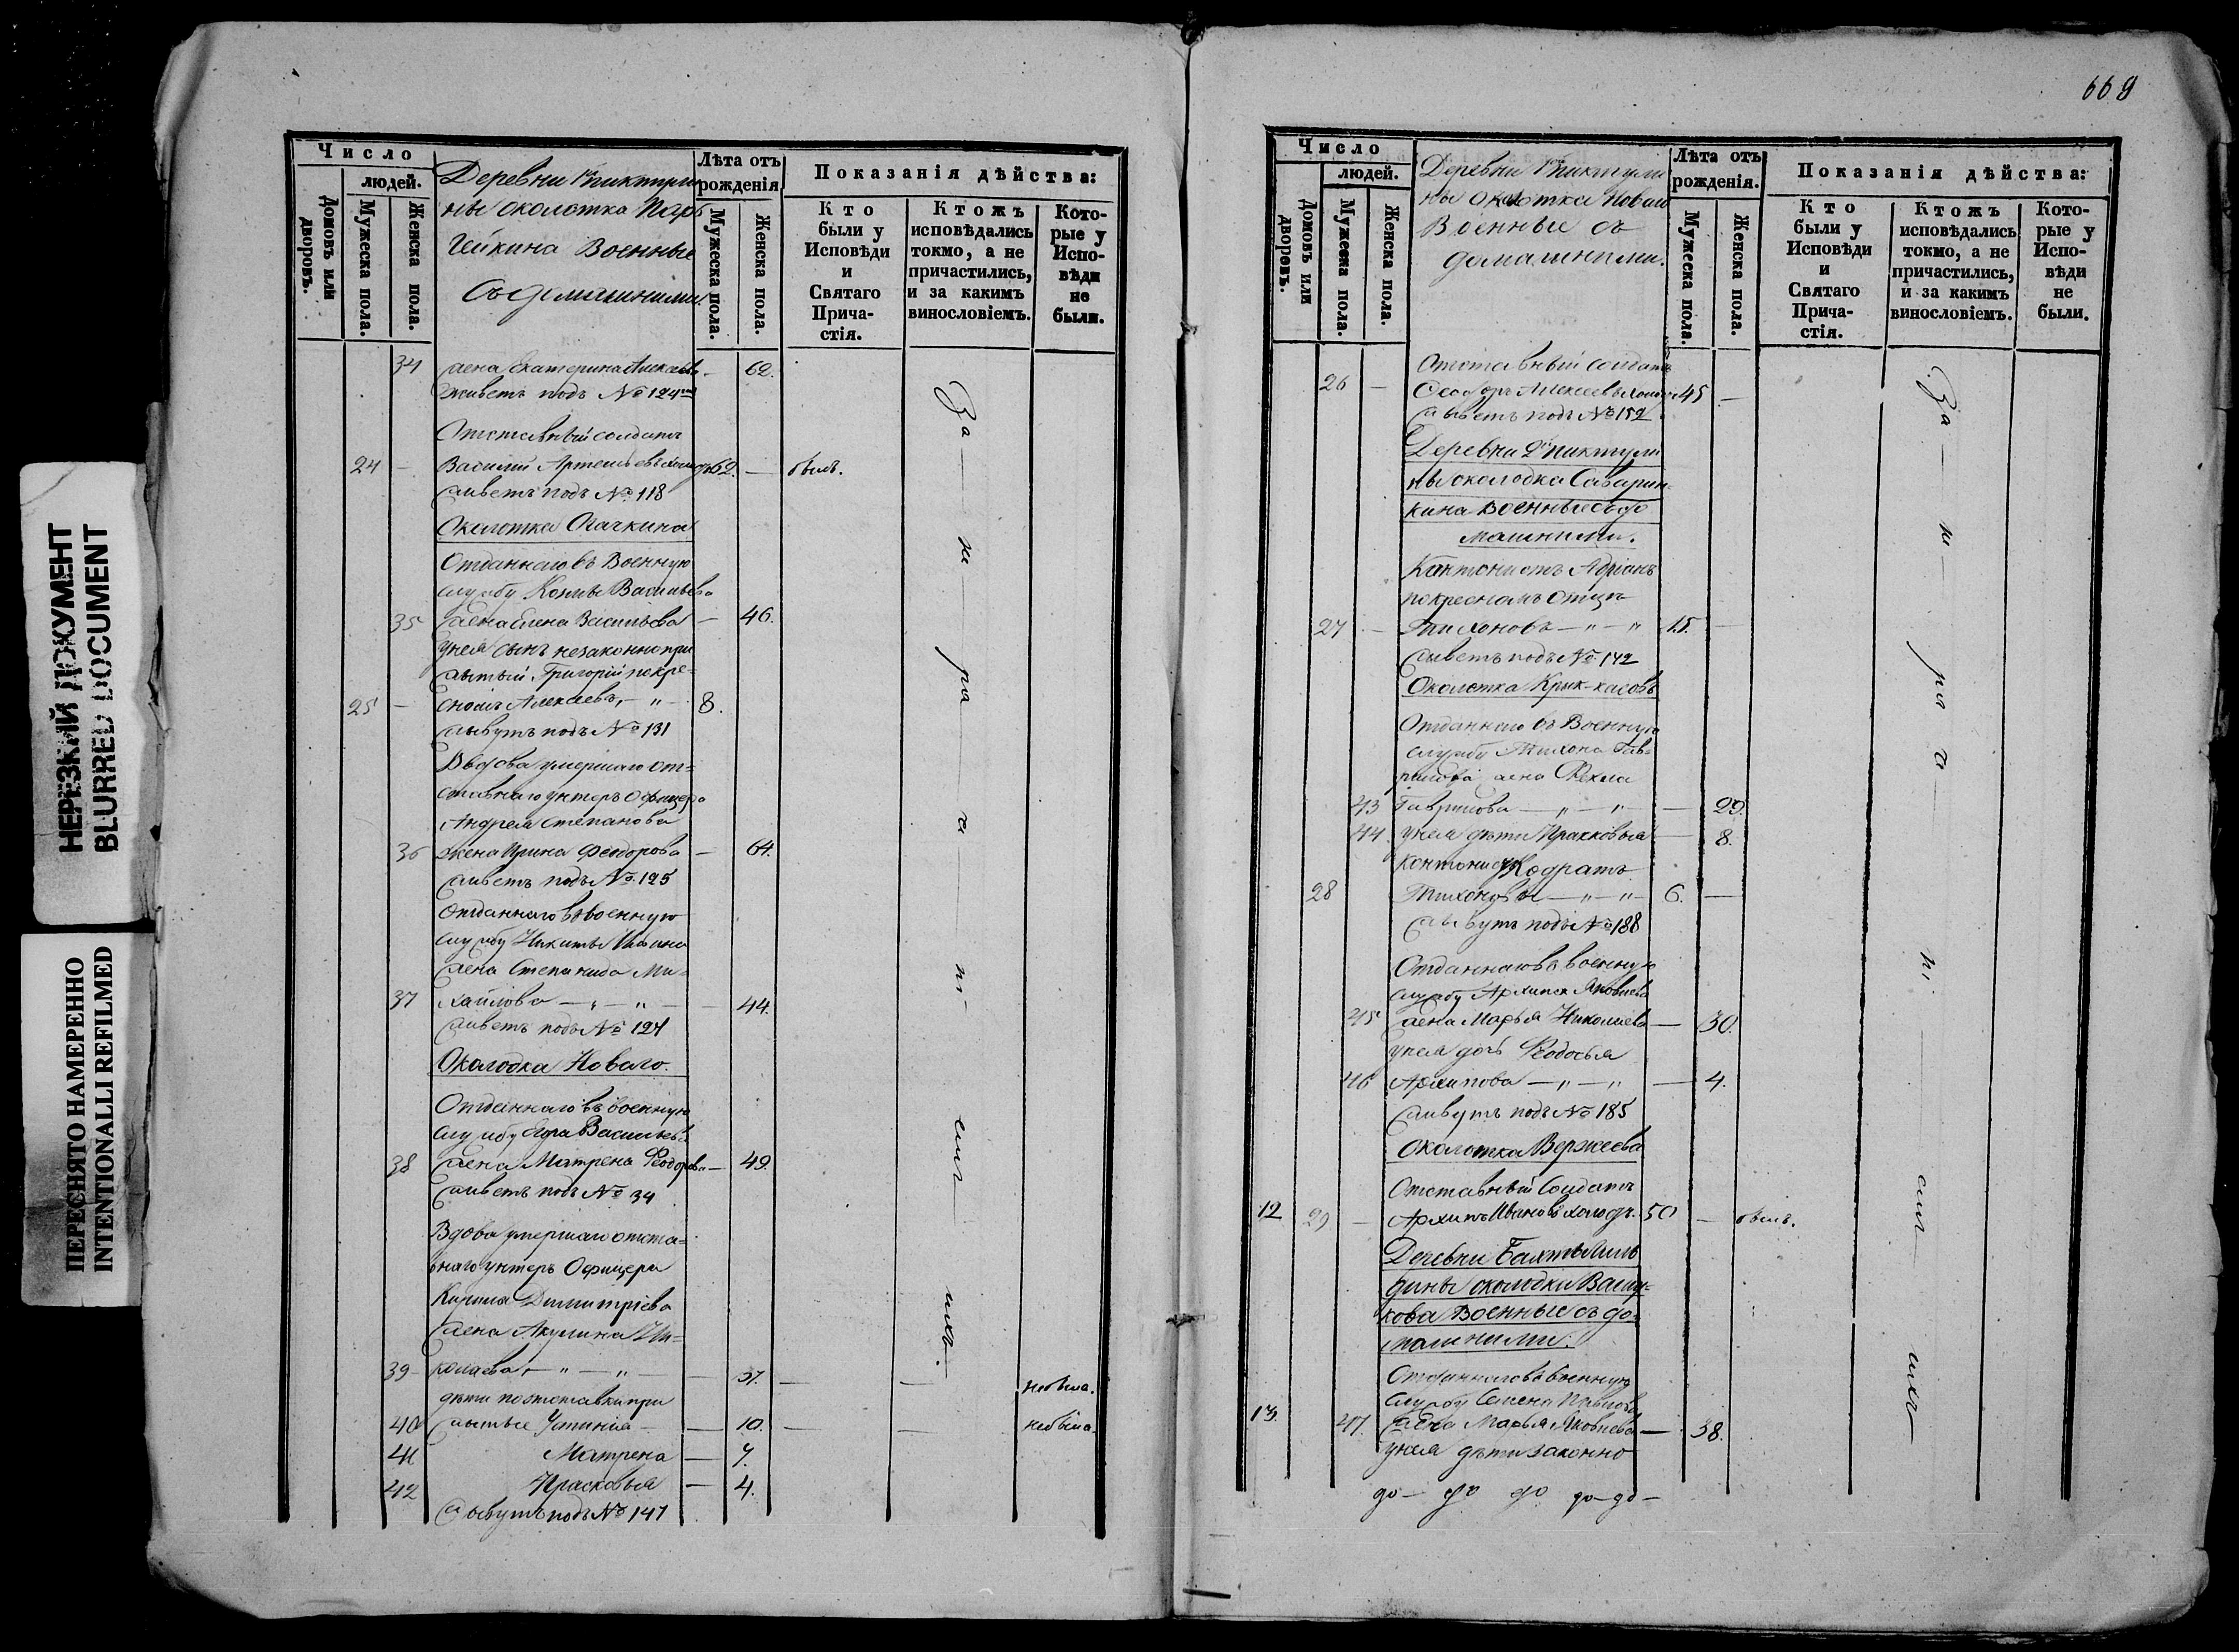 НЕРЕЗКИЙ ДОКУМЕНТ
BLURRED DOCUMENT
ПЕРЕСНЯТО НАМЕРЕННО
INTENTIONALLI REFILMED
Число
людей.
Домовъ или дворовъ.
Мужеска пола.
Женска пола.
Деревни
ны околотка
Военные
Съ домашними.
Лѣта отъ рожденія
Мужеска пола.
Женска пола.
Показанія дѣйства:
Кто были у Исповѣди и Святаго Прича-стія.
Ктожъ исповѣдались токмо, а не причастились, и за какимъ винословіемъ.
Кото-рые у Испо-вѣди не были.
34 жена Екатерина Алексѣева — 62.
живетъ подъ № 124мъ
Отставный солдатъ
24 — Василий Артемьевъ холодъ 62. — былъ.
живетъ подъ № 118
Околотка Огачкина
Отданнаго въ Военную
службу Козмы Васильева
35 жена Елена Васильева — 46.
у нея сынъ незаконнопри
житый Григорій по кре-
25 — сному Алексѣевъ, — „ — 8.
живутъ подъ № 131
Вдова умершаго от=
ставнаго унтеръ офицера
Андрея Степанова
36 жена Ирина Феодорова — 64.
живетъ подъ №. 125
Отданнаго въ военную
службу Никиты
жена Степанида Ми=
37 хайлова — „ — „ — 44.
живетъ подъ № 124
Околодка Новаго.
Отданнаго въ военную
службу Васильева
38 жена Матрена Феодорова — 49.
живетъ подъ № 34
Вдова умершаго отста=
внаго унтеръ Офицера
Кирила Димитріева
жена Акулина Ни=
39 — колаева, — „ — „ — 37. — — небыла.
дѣти по отставки при
40 житые Устинія — 10. — — небыла.
41 Матрена — 7.
42 Прасковья — 4.
живутъ подъ № 147
За — м — ра — ч — ні — емъ — ихъ.
669
Число
людей.
Домовъ или дворовъ.
Мужеска пола.
Женска пола.
Деревни
ны околотка Новаго
Военные съ
домашними.
Лѣта отъ рожденія.
Мужеска пола.
Женска пола.
Показанія дѣйства:
Кто были у Исповѣди и Святаго Прича-стія.
Ктожъ исповѣдались токмо, а не причастились, и за какимъ винословіемъ.
Кото-рые у Испо-вѣди не были.
Отставный солдатъ
26 — Феодоръ Алексеевъ 45 —
живетъ подъ № 152
Деревни
ны околодка Саварин
кина военные съ до
машними.
Кантонистъ Адріанъ
по кресномъ отцѣ
27 — Тихоновъ — „ — „ 15. —
живетъ подъ № 142
Околотка Крык-касовъ
Отданнаго въ Военную
службу Тихона Гав=
рилова жена Фекла
43 Гаврилова — „ — „ — 29.
44 у нея дѣти Прасковья — 8.
кантонистъ Кодратъ
28 Тихоновы — „ — „ 6. —
живутъ подъ № 188
Отданнаго въ военную
службу Архипа Яковлева
45 жена Марья Николаева — 30.
у нея дочь Феодосья
46 Архипова — „ — „ — 4.
живутъ подъ № 185
Околотка Вержеева
Отставный Солдатъ
12 29 — Архипъ Ивановъ холодъ. 50 — былъ.
Деревни
дины околодки
кова Военные съ до=
машними.
Отданнаго въ военную
службу Семена Павлова
13. 47. жена Марья Яковлева — 38.
у нея дѣти законно
до — до до до — до —
За — м — ра — ч — ні — емъ — ихъ